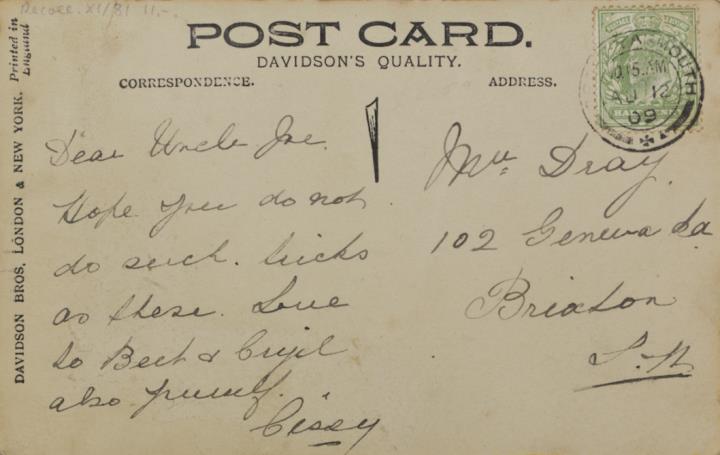 POST CARD.
DAVIDSON'S QUALITY.
CORRESPONDENCE.
ADDRESS.
DAVIDSON BROS, LONDON & NEW YORK. Printed in England
YARMOUTH
10.15 AM
AU 12
09
Dear Uncle Joe.
Hope you do not
do such tricks
as these. Love
to Bert & Cyril
also yourself.
Cissy
Mr Dray
102 Geneva Rd
Brixton